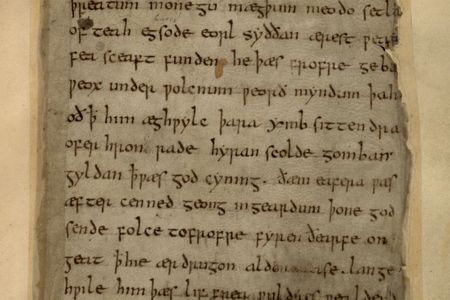 þreatum monegū mægþum meodo setla
of teah egsode eorl syððan ærest
fea sceaft funden he þæs frofre geba
ƿeox under ƿolcnum ƿeorð myndum þah
oð ꝥ him æghƿylc þara ymb sittendra
ofer hron rade hyran scolde gomban
gyldan ꝥ ƿæs god cyning. ðæm eafera ƿæs
æfter cenned geong in geardum þone god
sende folce tofrofre fyren ðearfe on
geat ꝥ hie ær drugon aldor ase. lange
hƿile him þæs lif frea ƿuldres